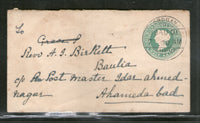 To
Revd A. I. Birkett
Baulia
c/o The Post Master Idar ahmed-
nagar
Ahamedabad